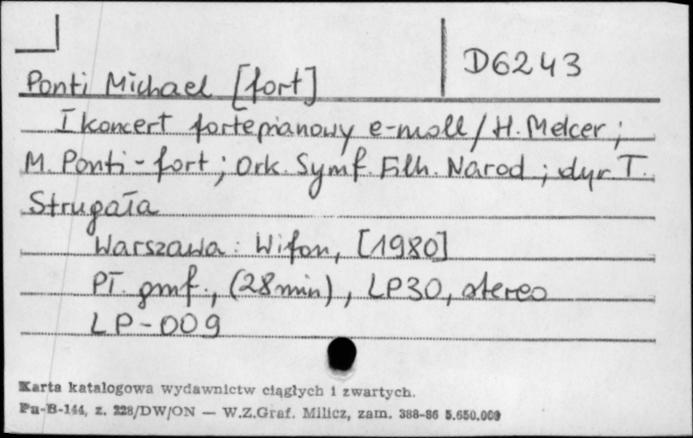 D6243
Ponti Michael [fort]
I koncert fortepianowy e-moll / H. Melcer ;
M. Ponti - fort ; Ork. Symf. Filh. Narod ; dyr T.
Strugała
Warszawa : Wifon, [1980]
Pł. gmf., (28 min), LP30, stereo
LP-009
Karta katalogowa wydawnictw ciągłych i zwartych.
Pu-B-144, z. 228/DW/ON — W.Z.Graf. Milicz, zam. 388-86 5.650.000